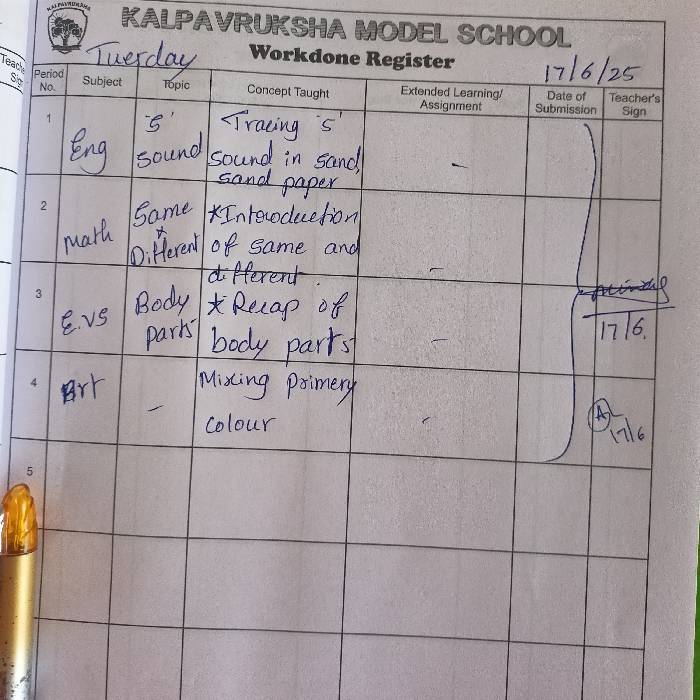 KALPAVRUKSHA
KALPAVRUKSHA MODEL SCHOOL
Tuerday
Workdone Register
17/6/25
Period No.
Subject
Topic
Concept Taught
Extended Learning/ Assignment
Date of Submission
Teacher's Sign
1
Eng
'S'
sound
Tracing 's'
sound in sand,
sand paper
-
2
Math
Same
&
Different
*Introduction
of same and
different.
-
3
E.VS
Body
parts
*Recap of
body parts
-
17/6.
4
Art
-
Mixing primery
colour
-
17/6
5